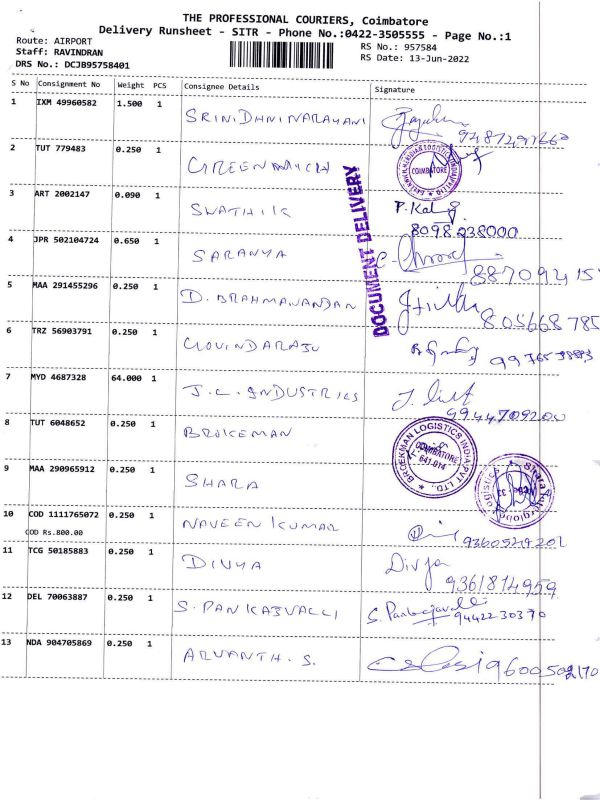 THE PROFESSIONAL COURIERS, Coimbatore
Delivery Runsheet - SITR - Phone No.:0422-3505555 - Page No.:1
Route: AIRPORT
RS No.: 957584
Staff: RAVINDRAN
RS Date: 13-Jun-2022
DRS No.: DCJB95758401
S No Consignment No Weight PCS Consignee Details Signature
1 IXM 49960582 1.500 1 SRINIDHNINARAYANI
2 TUT 779483 0.250 1
COIMBATORE
3 ART 2002147 0.090 1 SWATHIK P.
8098238000
DOCUMENT DELIVERY
4 JPR 502104724 0.650 1 SARANYA
887092415
5 MAA 291455296 0.250 1 D. BRAHMANANDAN
805668785
6 TRZ 56903791 0.250 1 GOVINDARAJU
7 MYD 4687328 64.000 1 J.C. INDUSTRIES
9944709200
8 TUT 6048652 0.250 1 BROKEMAN
BROEKMAN LOGISTICS INDIA PVT LTD.
COIMBATORE
641-014
9 MAA 290965912 0.250 1 SHARA
10 COD 1111765072 0.250 1 NAVEEN KUMAR
COD Rs.800.00
9360529201
11 TCG 50185883 0.250 1 DIVYA Divya
9361814959
12 DEL 70063887 0.250 1 S. PANKAJVALLI S. Pankajavalli
9442230370
13 NDA 904705869 0.250 1 ARVANTH. S.
9600502170